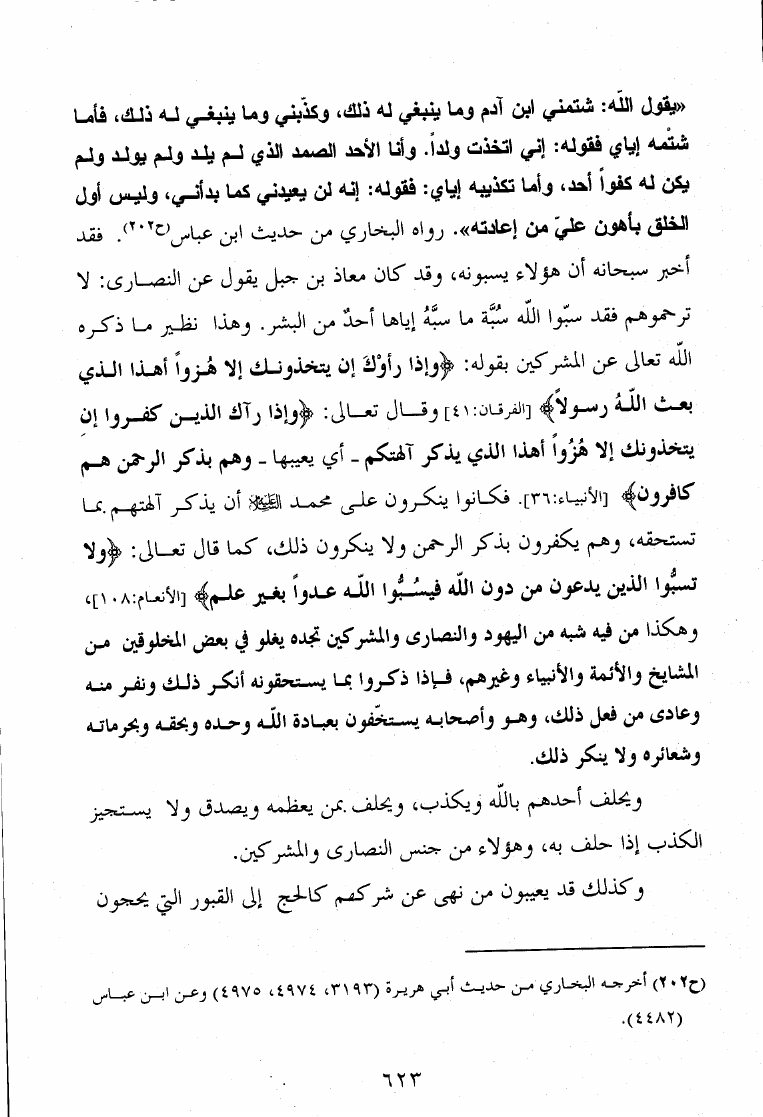 «يقول اللّه: شتمني ابن آدم وما ينبغي له ذلك، وكذّبني وما ينبغي له ذلك، فأما
شتْمه إياي فقوله: إني اتخذت ولداً. وأنا الأحد الصمد الذي لم يلد ولم يولد ولم
يكن له كفواً أحد، وأما تكذيبه إياي: فقوله: إنه لن يعيدني كما بدأني، وليس أول
الخلق بأهون عليّ من إعادته». رواه البخاري من حديث ابن عباس(ح٢٠٢). فقد
أخبر سبحانه أن هؤلاء يسبونه، وقد كان معاذ بن جبل يقول عن النصارى: لا
ترحموهم فقد سبّوا اللّه سُبَّة ما سبَّهُ إياها أحدٌ من البشر. وهذا نظير ما ذكره
اللّه تعالى عن المشركين بقوله: ﴿وإذا رأوْكَ إن يتخذونك إلا هُزواً أهذا الذي
بعث اللّهُ رسولاً﴾ [الفرقان:٤١] وقال تعالى: ﴿وإذا رآك الذين كفروا إن
يتخذونك إلا هُزُواً أهذا الذي يذكر آلهتكم ـ أي يعيبها ـ وهم بذكر الرحمن هم
كافرون﴾ [الأنبياء:٣٦]. فكانوا ينكرون على محمد ﷺ أن يذكر آلهتهم بما
تستحقه، وهم يكفرون بذكر الرحمن ولا ينكرون ذلك، كما قال تعالى: ﴿ولا
تسبُّوا الذين يدعون من دون اللّه فيسُبُّوا اللّه عدواً بغير علم﴾ [الأنعام:١٠٨]،
وهكذا من فيه شبه من اليهود والنصارى والمشركين تجده يغلو في بعض المخلوقين من
المشايخ والأئمة والأنبياء وغيرهم، فإذا ذكروا بما يستحقونه أنكر ذلك ونفر منه
وعادى من فعل ذلك، وهو وأصحابه يستخّفون بعبادة اللّه وحده وبحقه وبحرماته
وشعائره ولا ينكر ذلك.
ويحلف أحدهم باللّه ويكذب، ويحلف بمن يعظمه ويصدق ولا يستجيز
الكذب إذا حلف به، وهؤلاء من جنس النصارى والمشركين.
وكذلك قد يعيبون من نهى عن شركهم كالحج إلى القبور التي يحجون
(ح٢٠٢) أخرجه البخاري من حديث أبي هريرة (٣١٩٣، ٤٩٧٤، ٤٩٧٥) وعن ابن عباس
(٤٤٨٢).
٦٢٣